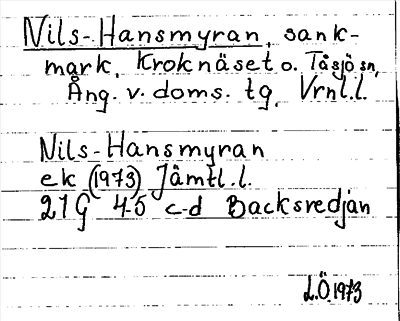 Nils-Hansmyran, sank-
mark, Kroknäset o. Tåsjö sn,
Ång. v. doms. tg, Vrnl.l.
Nils-Hansmyran
ek (1973) Jämtl.l.
21G 45 c-d Backsredjan
L.Ö.1973